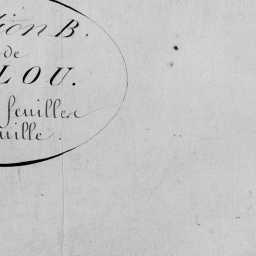 tion B.
de
LOU.
feuilles
uille.